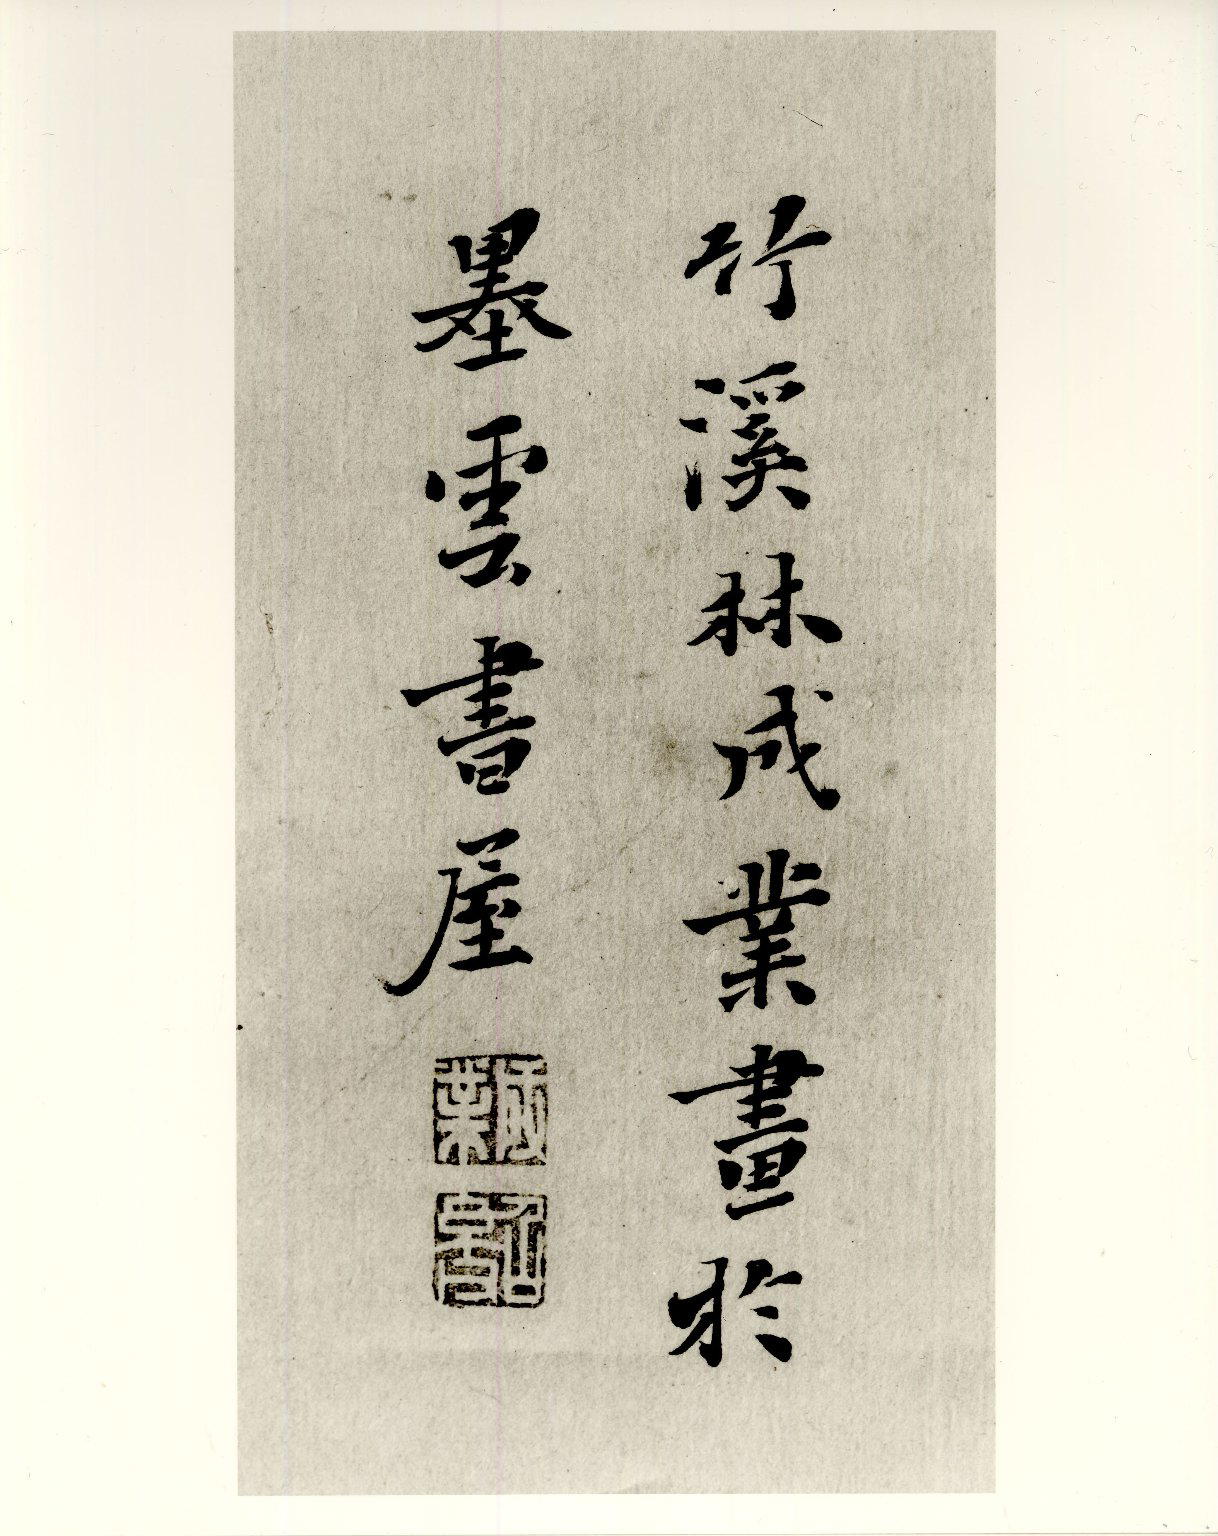 竹溪林成業畫於
墨雲書屋
成業